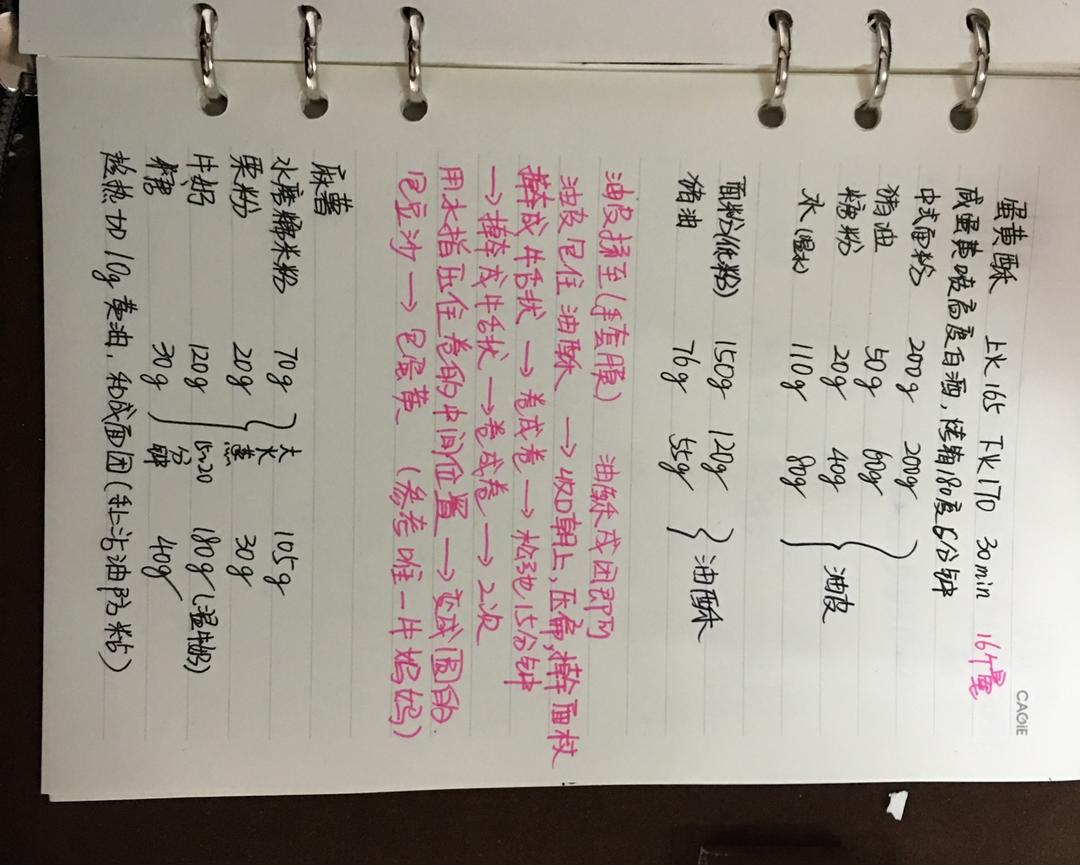 CAGIE
蛋黄酥 上火165 下火170 30min 16个量
咸蛋黄喷高度白酒,烤箱180度5分钟
中式面粉 200g 200g
猪油 50g 60g
糖粉 20g 40g 油皮
水(温水) 110g 80g
面粉(低粉) 150g 120g
猪油 76g 55g 油酥
油皮揉至(手套膜) 油酥成团即可
油皮包住油酥 → 收口朝上,压扁,擀面杖
擀成牛舌状 → 卷成卷 → 松弛15分钟
→ 擀成牛舌状 → 卷成卷 → 2次
用水指压住卷的中间位置 → 变成圆的.
包豆沙 → 包蛋黄 (参考唯一片妈妈)
麻薯
水磨糯米粉 70g 大火 105g
粟粉 20g 蒸 30g
牛奶 120g 15-20 180g(温牛奶)
糖 30g 分钟 40g
趁热加10g黄油,和成面团(手上沾油防粘)